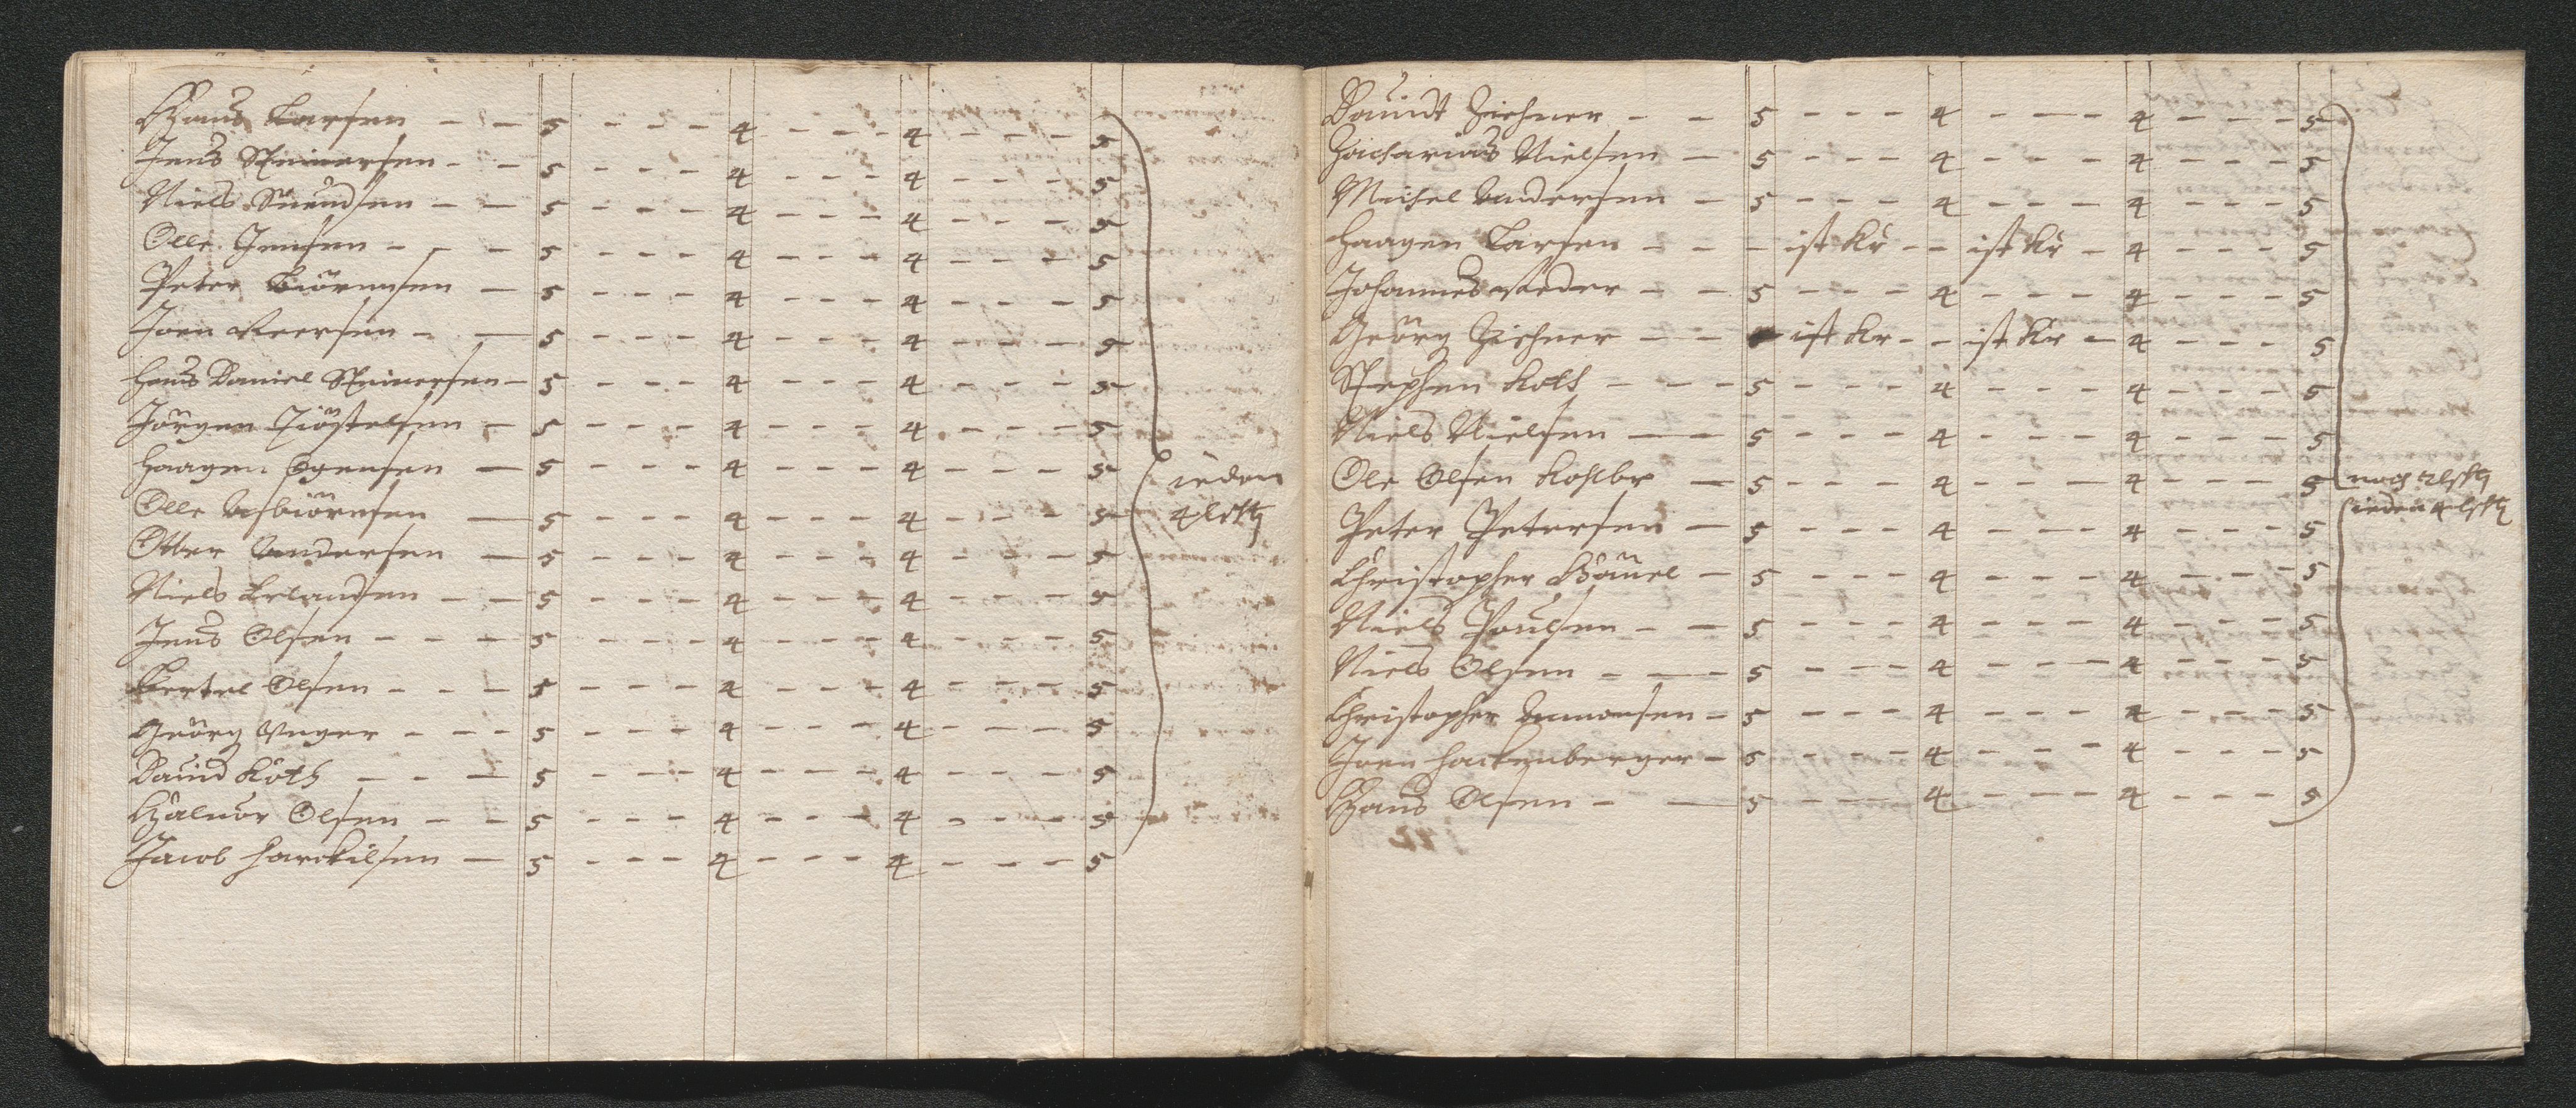 Hans Larsen - - 5 - - - 4 - - - 4 - - - 5
Jens Steinersen - - 5 - - - 4 - - - 4 - - - 5
Niels Suendsen - - 5 - - - 4 - - - 4 - - - 5
Olle Jensen - - - 5 - - - 4 - - - 4 - - - 5
Peter Biörnsen - 5 - - - 4 - - - 4 - - - 5
Joen Peersen - - 5 - - - 4 - - - 4 - - - 5
Hans Daniel Steinersen - 5 - - - 4 - - - 4 - - - 5
Jörgen Kiöstelsen - 5 - - - 4 - - - 4 - - - 5
Haagen Ogensen - 5 - - - 4 - - - 4 - - - 5
ieden
Olle Asbiörnsen - 5 - - - 4 - - - 4 - - - 5
4
Otter Andersen - 5 - - - 4 - - - 4 - - - 5
Niels Erlandsen - - 5 - - - 4 - - - 4 - - - 5
Jens Olsen - - - 5 - - - 4 - - - 4 - - - 5
Bertel Olsen - - - 5 - - - 4 - - - 4 - - - 5
Geörg Unger - - - 5 - - - 4 - - - 4 - - - 5
Dauid Köth - - - 5 - - - 4 - - - 4 - - - 5
Haluor Olsen - - 5 - - - 4 - - - 4 - - - 5
Jacob - 5 - - - 4 - - - 4 - - - 5
Dauidt Zichner - - 5 - - - 4 - - - 4 - - - 5
Zacharias Nielsen - 5 - - - 4 - - - 4 - - - 5
Michel Andersen - 5 - - - 4 - - - 4 - - - 5
Haagen Larsen - - - ist Kr - - ist Kr - 4 - - - 5
Johannes Reder - - 5 - - - 4 - - - 4 - - - 5
Geörg Zichner - - - ist Kr - - ist Kr - 4 - - - 5
Stephen Koth - - - 5 - - - 4 - - - 4 - - - 5
Niels Nielsen - - 5 - - - 4 - - - 4 - - - 5
Ole Olsen Kohlbr - 5 - - - 4 - - - 4 - - - 5
noch
ieden 4
Peter Petersen - 5 - - - 4 - - - 4 - - - 5
Christopher - 5 - - - 4 - - - 4 - - - 5
Niels Poulsen - - 5 - - - 4 - - - 4 - - - 5
Niels Olsen - - 5 - - - 4 - - - 4 - - - 5
Christopher Ammonsen - 5 - - - 4 - - - 4 - - - 5
Joen Hackenberger - 5 - - - 4 - - - 4 - - - 5
Hans Olsen - - 5 - - - 4 - - - 4 - - - 5